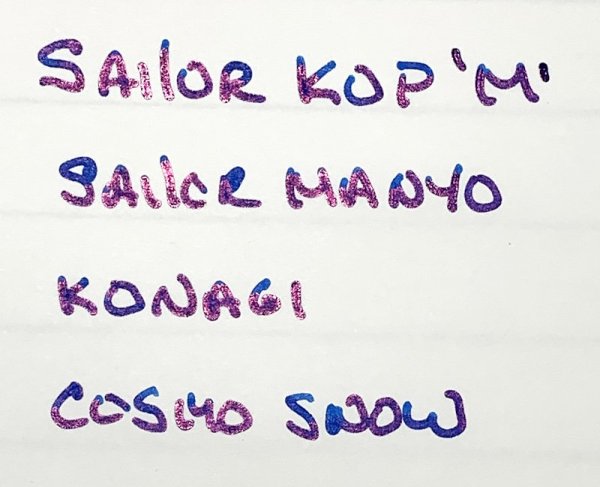 SAilOR KOP 'M'
SAilOR MANYO
KONAGI
COSMO SNOW